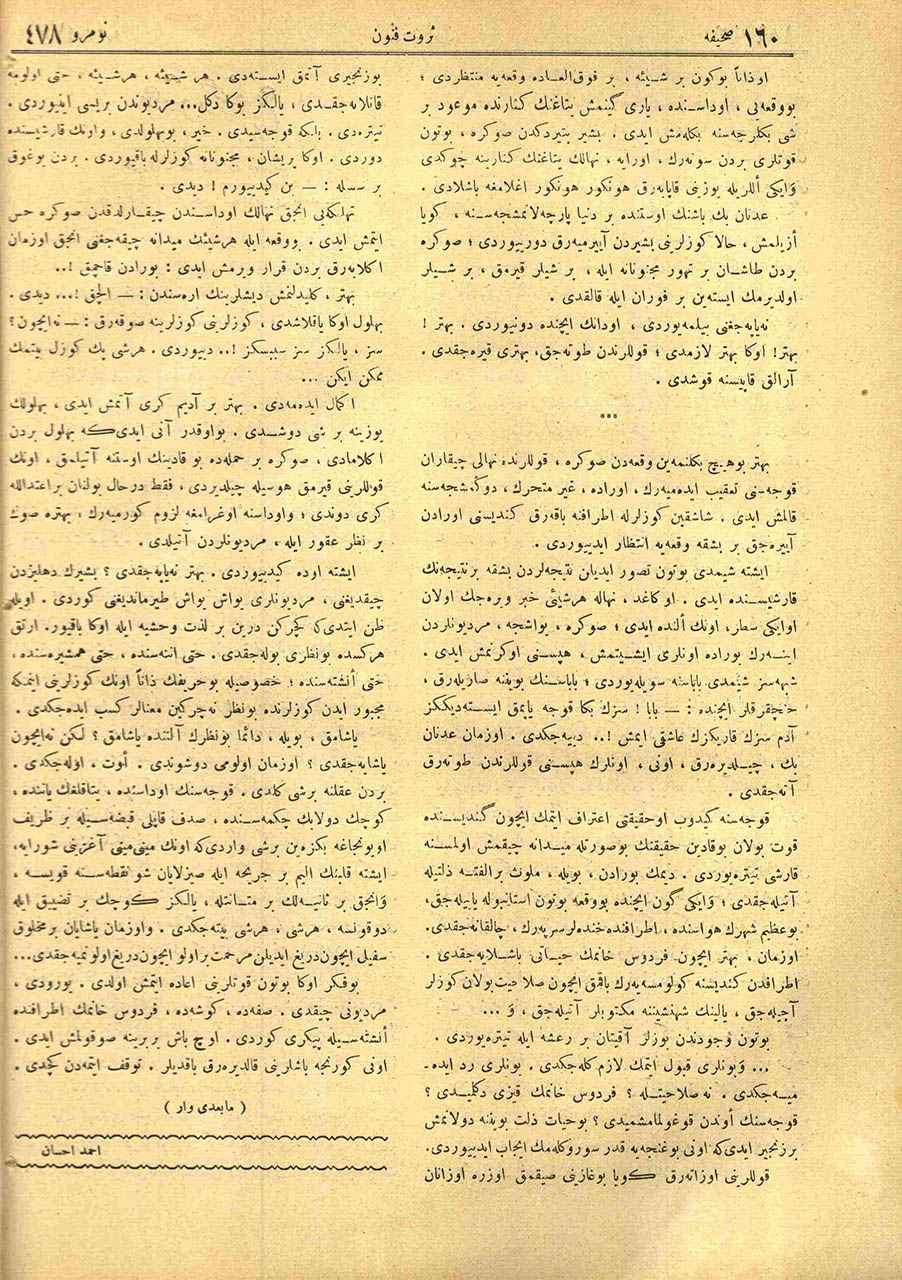 ١٦٠ صحیفه
ثروت فنون
نومرو ٤٧٨
اوذاتاً بوكون بر شیئه ، بر فوق‌العاده وقعه‌یه منتظردی ؛
بووقعه‌یی ، اوداسنده ، یاری گینمش یتاغنك كنارنده موعود بر
شی بكلرجه‌سنه بكله‌مش ایدی . بشیر بتیردكدن صوكره ، بوتون
قوتلری بردن سونه‌رك ، اورایه ، نهالك یتاغنك كنارینه چوكدی
وایكی اللریله یوزینی قاپایه‌رق هونكور هونكور اغلامغه باشلادی .
عدنان بك باشنك اوستنده بر دنیا پارچه‌لانمشجه‌سنه ، كویا
أزیلمش ، حالا كوزلرینی بشیردن آییرمیه‌رق دورییوردی ؛ صوكره
بردن طاشان بر تهور مجنونانه ایله ، بر شیلر قیرمق ، بر شیلر
اولدیرمك ایسته‌ین بر فوران ایله قالقدی .
نه‌یاپه‌جغنی بیلمه‌یوردی ، اودانك ایچنده دونیوردی . بهتر !
بهتر ! اوكا بهتر لازمدی ؛ قوللرندن طوته‌جق، بهتری قیره‌جقدی .
آرالق قاپیسنه قوشدی .
***
بهتر بوهیچ بكلنمه‌ین وقعه‌دن صوكره ، قوللرنده نهالی چیقاران
قوجه‌سنی تعقیب ایده‌میه‌رك ، اوراده ، غیر متحرك ، دوكمشجه‌سنه
قالمش ایدی . شاشقین كوزلرله اطرافنه باقه‌رق كندیسنی اورادن
آییره‌جق بر بشقه وقعه‌یه انتظار ایدییوردی .
ایشته شیمدی بوتون تصور ایدیلن نتیجه‌لردن بشقه برنتیجه‌نك
قارشیسنده ایدی . او كاغد ، نهاله هرشیئی خبر ویره‌جك اولان
اوایكی سطار، اونك ألنده ایدی ؛ صوكره ، یواشجه ، مردیونلردن
اینه‌رك بوراده اونلری ایشیتمش ، هپسنی اوكرنمش ایدی .
شبهه‌سز شیمدی باباسنه سویله‌یوردی ؛ باباسنك بویننه صاریله‌رق ،
خنچقرقلر ایچنده : — بابا ! سزك بكا قوجه یاپمق ایسته‌دیككز
آدم سزك قاریكزك عاشقی ایمش !.. دییه‌جكدی . اوزمان عدنان
بك ، چیلدیره‌رق ، اونی ، اونلرك هپسنی قوللرندن طوته‌رق
آته‌جقدی .
قوجه‌سنه كیدوب اوحقیقتی اعتراف ایتمك ایچون گندیسنده
قوت بولان بوقادین حقیقتك بوصورتله میدانه چیقمش اولمسنه
قارشی تیتره‌یوردی . دیمك بورادن ، بویله ، ملوث برالفتـه ذلتیله
آتیله‌جقدی ؛ وایكی گون ایچنده بووقعه بوتون استانبوله یاییله‌جق،
بوعظیم شهرك هواسنده ، اطرافنده خنده‌لر سرپه‌رك، چالقانه‌جقدی.
اوزمان ، بهتر ایچون فردوس خانمك حیـاتی باشـلایه‌جقدی .
اطرافدن كندیسنه كولومسه‌یه‌رك باقمق ایچون صلاحیت بولان كوزلر
آچیله‌جق ، یالینك شهنشیننه مكتوبلر آتیله‌جق ، و ...
بوتون وجودندن بوزلر آقیتان بر رعشه ایله تیتره‌یوردی .
... وبونلری قبول ایتمك لازم كله‌جكدی . بونلری رد ایده‌-
میه‌جكدی . نه صلاحیتله ؟ فردوس خانمك قیزی دكلمیدی ؟
قوجه‌سنك أوندن قوغولمامشمیدی ؟ بوحیات ذلت بویننه دولانمش
برزنجیر ایدی‌كه اونی بوغنجه‌یه قدر سوروكله‌مك ایجاب ایدییوردی.
قوللرینی اوزاته‌رق كویا بوغازینی صیقمق اوزره اوزانان
بوزنجیری آتمق ایسته‌دی . هر شیئه ، هرشیئه ، حتی اولومه
قاتلانه‌جقدی ، یالكز بوكا دكل... مردیوندن بریسی اینیوردی .
تیتره‌دی . بلكه قوجه‌سیدی . خیر ، بوبهلولدی ، واونك قارشیسنده
دوردی . اوكا پریشان ، مجنونانه كوزلرله باقیوردی . بردن بوغوق
بر سسله : — بن كیدییورم ! دیدی .
تهلكه‌یی انجق نهالك اوداسندن چیقارلدقدن صوكره حس
ایتمش ایدی . بووقعه ایله هرشیئك میدانه چیقه‌جغنی انجق اوزمان
اكلایه‌رق بردن قرار ویرمش ایدی : بورادن قاچمق !..
بهتر ، كلیدلنمش دیشلرینك اره‌سندن : — الچق !... دیدی .
بهلول اوكا یاقلاشدی ، كوزلرینی كوزلرینه صوقه‌رق : — نه‌ایچون ؟
سز ، یالكز سز سببسكز !.. دییوردی . هرشی پك كوزل بیتمك
ممكن ایكن ...
اكمال ایده‌مه‌دی . بهتر بر آدیم كری آتمش ایدی ، بهلولك
یوزینه بر شی دوشـدی . بواوقدر آنی ایدی‌كه بهلول بردن
اكلامادی ، صوكره بر حمله‌ده بو قادینك اوستنه آتیلمق ، اونك
قوللرینی قیرمق هوسیله چیلدیردی ، فقط درحال بولنان براعتدالله
كری دوندی ؛ واوداسنه اوغرامغه لزوم كورمیه‌رك ، بهتره صوك
بر نظر عقور ایله ، مردیونلردن آتیلدی .
ایشته اوده كیدییوردی . بهتر نه‌یاپه‌جقدی ؟ بشیرك دهلیزدن
چیقدیغنی ، مردیونلری یواش یواش طیرماندیغنی كوردی . اویله
ظن ایتدی‌كه كچركن درین بر لذت وحشیه ایله اوكا باقیور. ارتق
هركسده بونظری بوله‌جقدی . حتی اننه‌سنده ، حتی همشیره‌سنده ،
حتی أنشته‌سنده ؛ خصوصیله بوحریفك ذاتاً اونك كوزلرینی ایتمكه
مجبور ایدن كوزلرنده بونظر نه‌چركین معنالر كسب ایده‌جكدی .
یاشامق ، بویله ، دائما بونظرك آلتنده یاشامق ؟ لكن نه‌ایچون
یاشایه‌جقدی ؟ اوزمان اولومی دوشوندی . أوت ، اوله‌جكدی .
بردن عقلنه برشی كلدی . قوجه‌سنك اوداسنده ، یتاقلغك یاننده ،
كوچك دولابك چكمه‌سنده ، صدف قاپلی قبضه‌سیله بر ظریف
اویونجاغه بكزه‌ین برشی واردی‌كه اونك مینی‌مینی آغزینی شورایه،
ایشته قلبنك الیم بر جریحه ایله صیزلایان شو نقطه‌سنه قویسه ،
وانجق بر ثانیه‌لك بر متـانتله ، یالكز كوچك بر تضییق ایله
دوقونسه ، هرشی ، هرشی بیته‌جكدی . واوزمان یاشایان برمخلوق
سفیل ایچون دریغ ایدیلن مرحمت بر اولو ایچون دریغ اولونمیه‌جقدی...
بوفكر اوكا بوتون قوتلرینی اعاده ایتمش اولدی . یورودی ،
مردیونی چیقدی . صفه‌ده ، كوشه‌ده ، فردوس خانمك اطرافنده
أنشته‌سیله پیكری كوردی . اوچ باش بربرینه صوقولمش ایدی .
اونی كورنجه باشلرینی قالدیره‌رق باقدیلر . توقف ایتمه‌دن كچدی .
( مابعدی وار )
احمد احسان